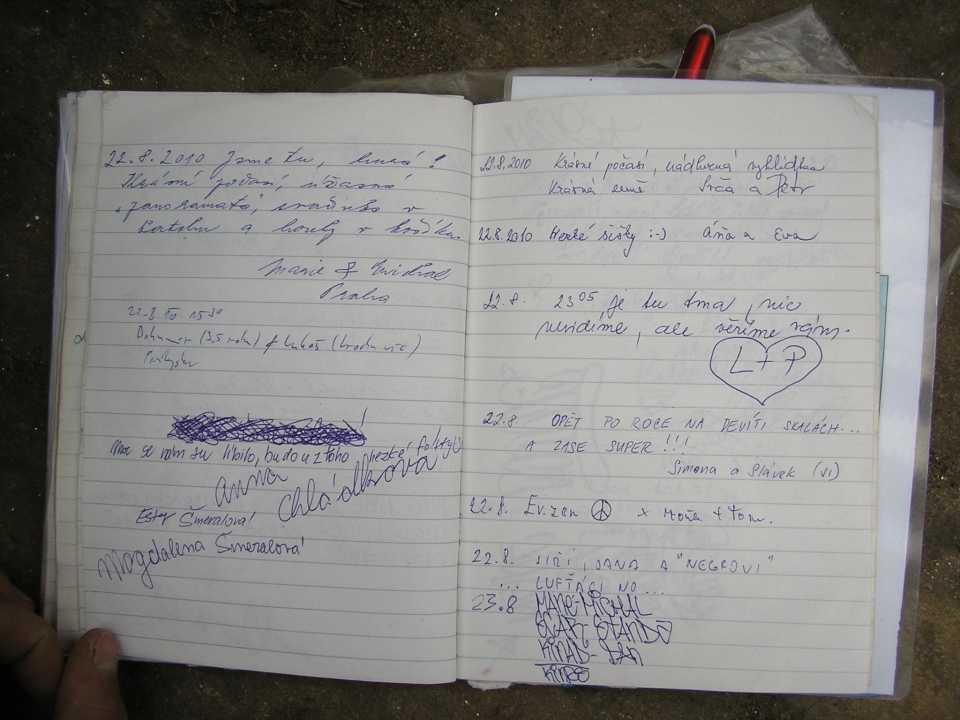 22.8.2010 Jsme tu, hurá!
Krásné počasí, úžasné
"panorámata", svačinka v
batohu a houby v košíku
Marie &
Praha
22.8.10 15³⁰
(3,5 roku) & Lukáš
Moc se nám tu líbilo, budou z toho hezké
Anna
Chládková
Ester Šmeralová!
Magdalena Šmeralová!
22.8.2010 Krásné počasí, nádherná vyhlídka
Krásná země Srča a Petr
22.8.2010 Hezké šišky :-) Áňa a Eva
22.8. 23⁰⁵ je tu tma, nic
nevidíme, ale věříme vám.
L+P
22.8. OPĚT PO ROCE NA DEVÍTI SKALÁCH...
A ZASE SUPER!!!
Simona a Slávek (JI)
22.8. Evžen x Moňa + Tom.
22.8. JIŘÍ, JANA A "NEGROVI"
... LUFŤÁCI NO...
23.8 MICHAL
STANDA